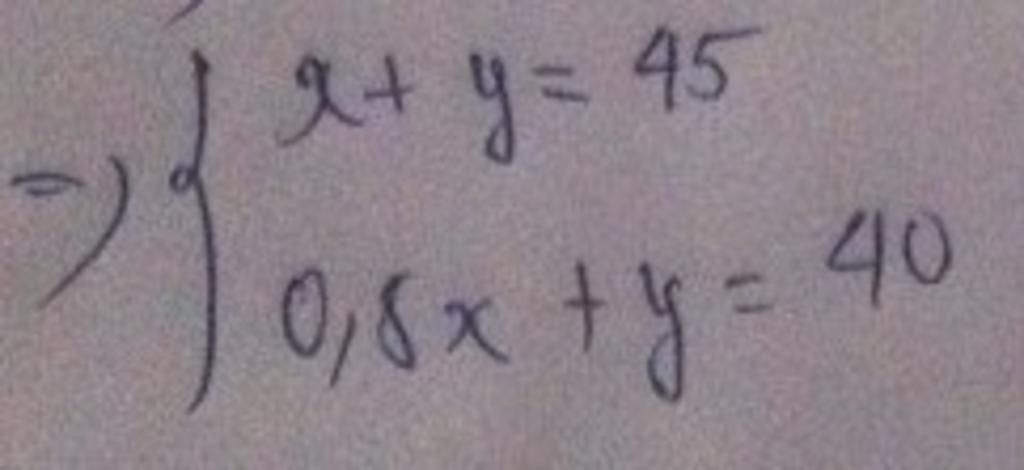 => { x + y = 45
0,8x + y = 40